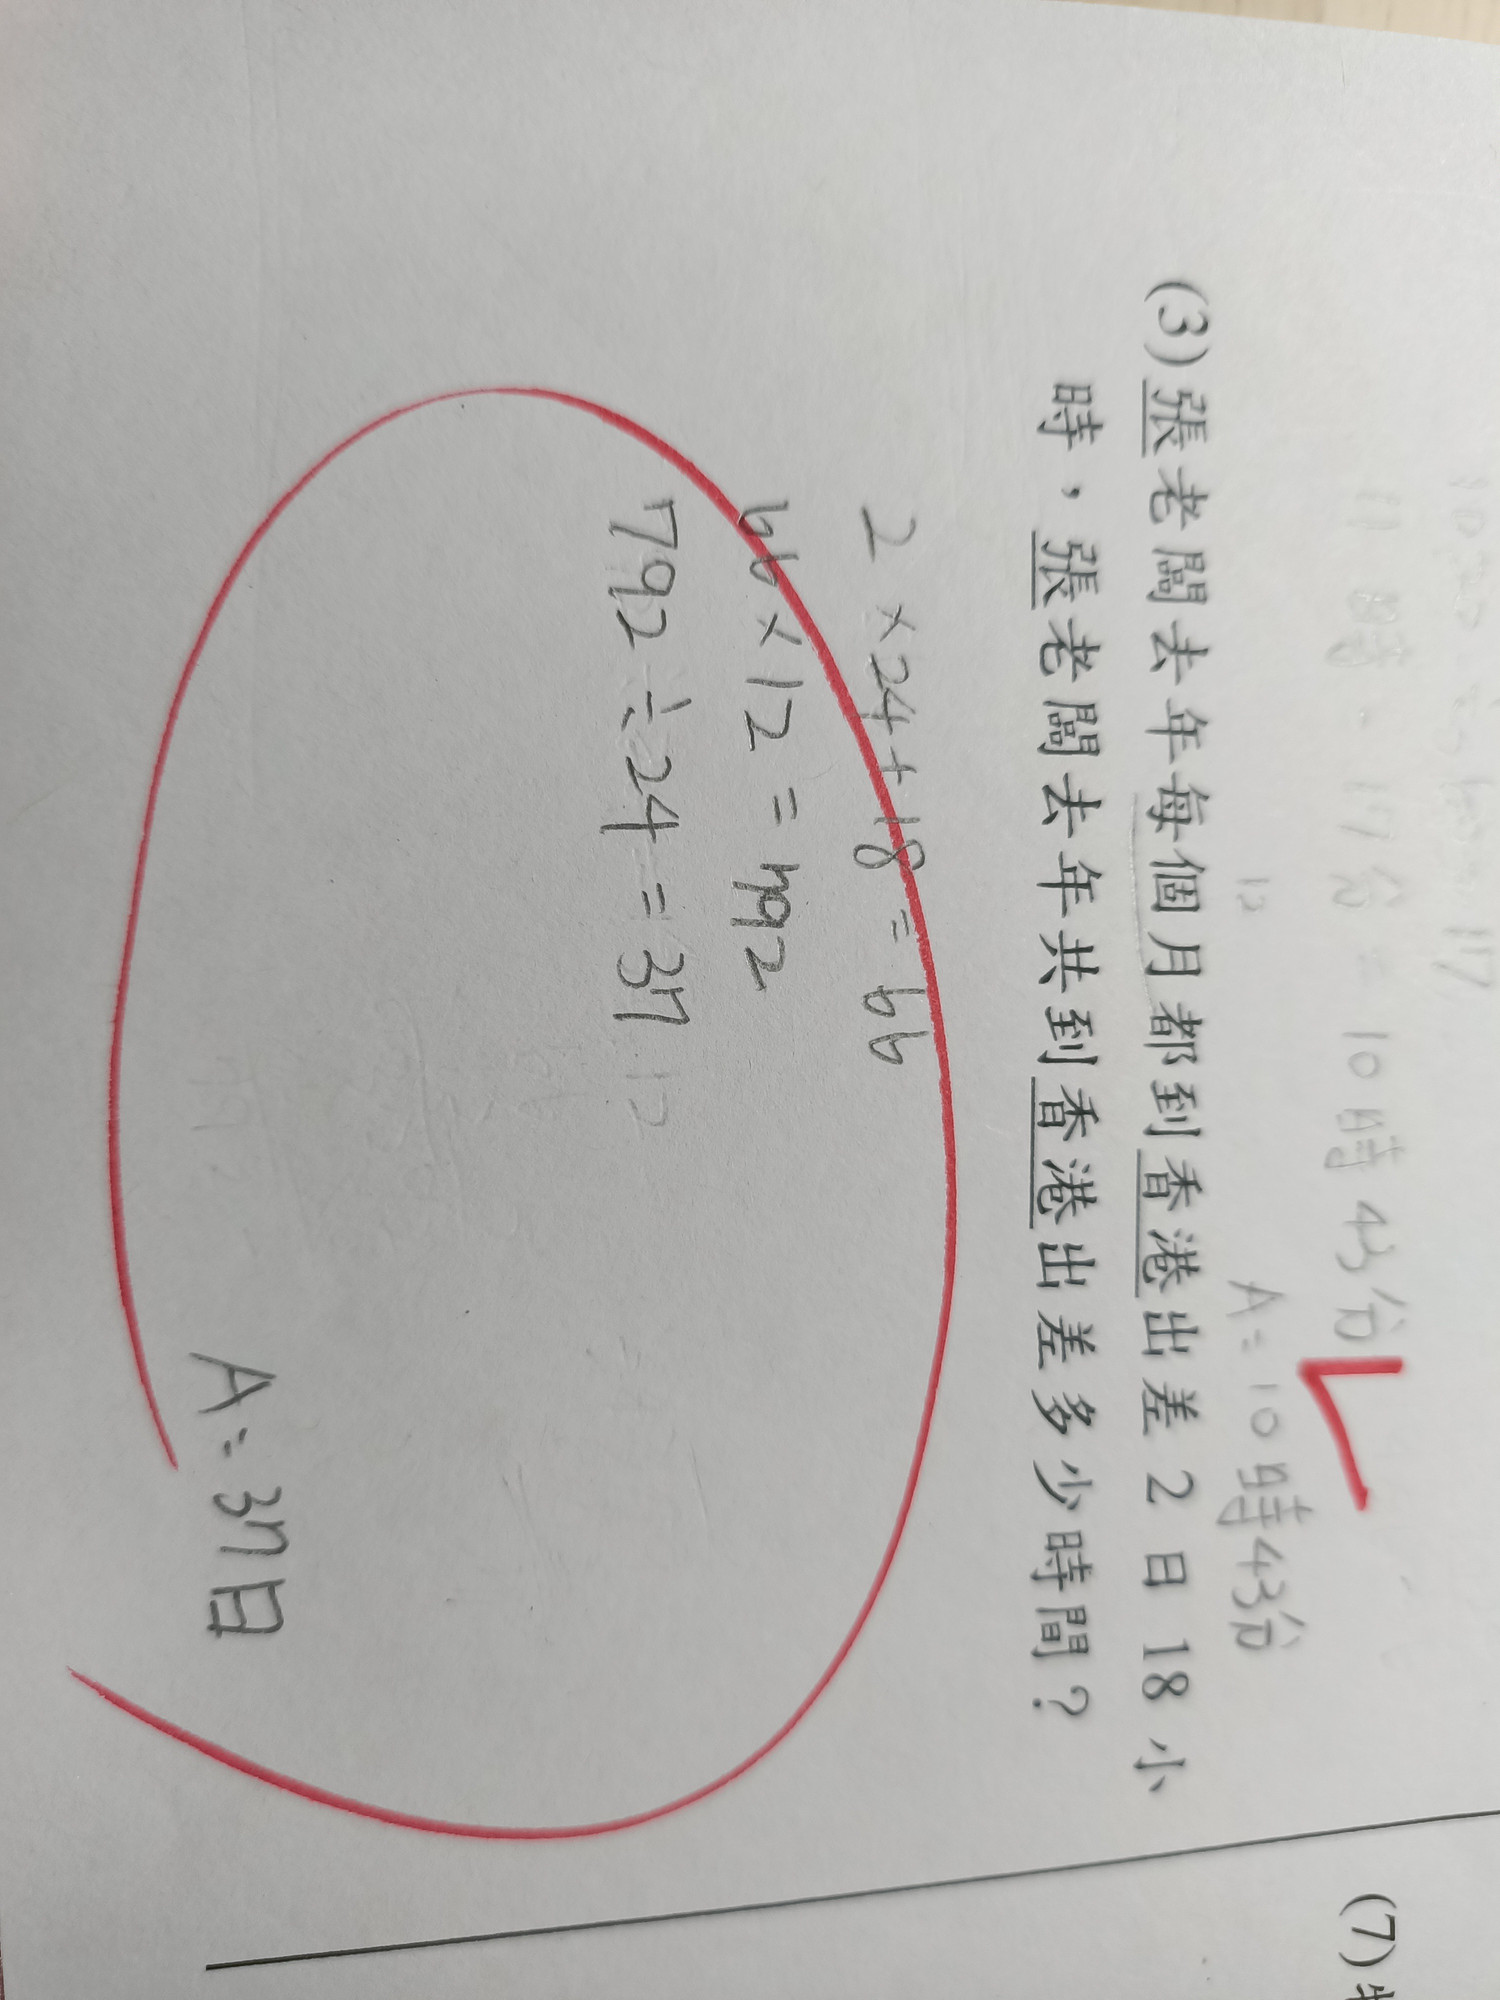 11時-17分=10時43分
12
A:10時43分
(3)張老闆去年每個月都到香港出差2日18小
時，張老闆去年共到香港出差多少時間？
2×24+18=66
66×12=792
792÷24=37
A:37日
(7)